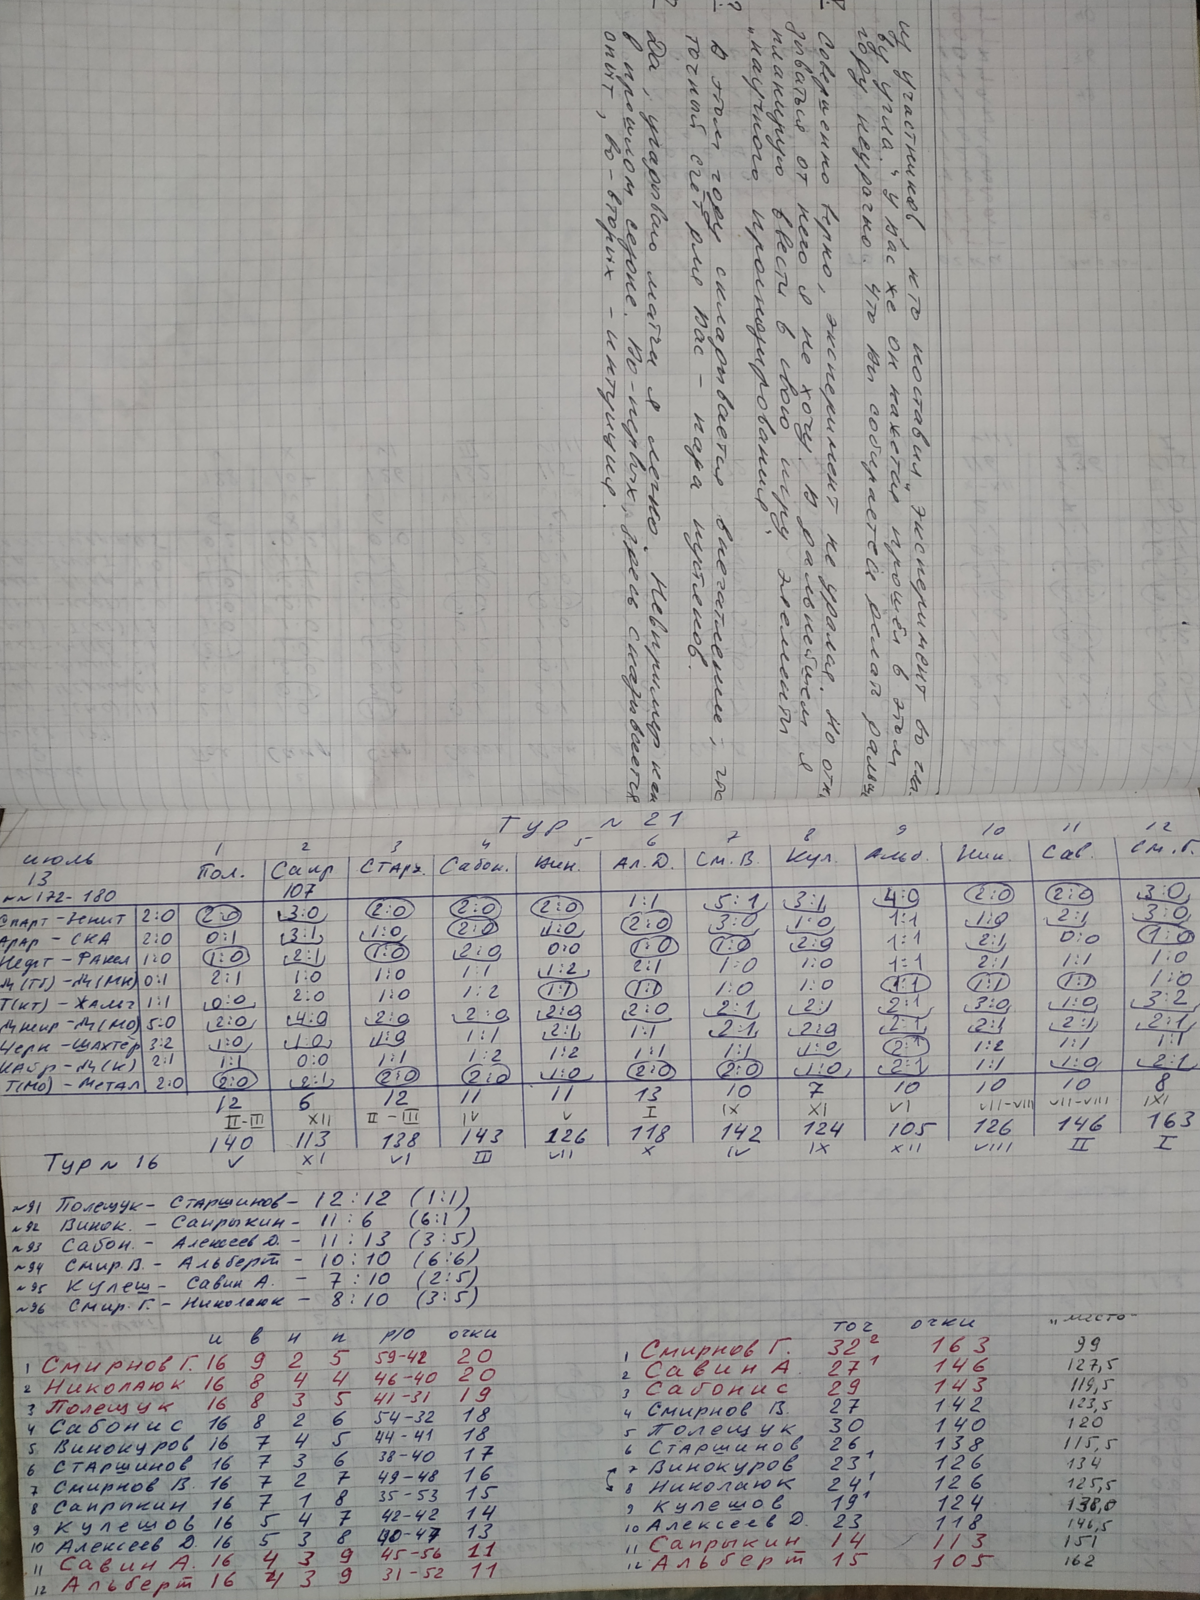 из участников, кто поставил „эксперимент во гла-
ву угла.“ У Вас же он кажется прошёл в этом
году неудачно. Что Вы собираетесь делать дальш
Совершенно верно, эксперимент не удался. Но отк
зываться от него я не хочу. В дальнейшем я
планирую ввести в свою игру элементы
„научного прогнозирования“
? В этом году складывается впечатление, что
точный счёт для Вас – пара пустяков.
Да, угадываю матчи я легко. Невпример
в прошлом сезоне. Во-первых, здесь сказывается
опыт, во-вторых – интуиция.
Тур №21
1 2 3 4 5 6 7 8 9 10 11 12
июль Пол. Сапр Старш. Сабон. Вин. Ал.Д. См.В. Кул. Альб. Ник. Сав. См.Г.
13
№№172-180 107
Спарт-Зенит 2:0 2:0 3:0 2:0 2:0 2:0 1:1 5:1 3:1 4:0 2:0 2:0 3:0
Арар-СКА 2:0 0:1 3:1 1:0 2:0 1:0 2:0 3:0 1:0 1:1 1:0 2:1 3:0
Нефт-Факел 1:0 1:0 2:1 1:0 2:0 0:0 1:0 1:0 2:0 1:1 2:1 0:0 1:0
Д(Тб)-Д(Мн) 0:1 2:1 1:0 1:0 1:1 1:2 2:1 1:0 1:0 1:1 2:1 1:1 1:0
Т(Кт)-Жальг 1:1 0:0 2:0 1:0 1:2 1:1 1:1 1:0 1:0 1:1 1:1 1:1 1:0
Днепр-Д(Мо) 5:0 2:0 4:0 2:0 2:0 2:0 2:0 2:1 2:1 2:1 3:0 1:0 3:2
Черн-Шахтер 3:2 1:0 1:0 1:0 1:1 2:1 1:1 2:1 2:0 2:1 2:1 2:1 2:1
Кабр-Д(К) 2:1 1:1 0:0 1:1 1:2 1:2 1:1 1:1 1:0 2:1 1:2 1:1 1:1
Т(Мо)-Метал 2:0 2:0 2:1 2:0 2:0 1:0 2:0 2:0 1:0 2:1 1:1 1:0 2:1
12 6 12 11 11 13 10 7 10 10 10 8
II-III XII II-III IV V I IX XI VI VII-VIII VII-VIII
140 113 138 143 126 118 142 124 105 126 146 163
V XI VI III VII X IV IX XII VIII II I
Тур №16
№91 Полещук – Старшинов – 12:12 (1:1)
№92 Винок. – Сапрыкин – 11:6 (6:1)
№93 Сабон. – Алексеев Д. – 11:13 (3:5)
№94 Смир.В. – Альберт – 10:10 (6:6)
№95 Кулеш – Савин А. – 7:10 (2:5)
№96 Смир.Г. – Николаюк – 8:10 (3:5)
и в н п р/о очки
1 Смирнов Г. 16 9 2 5 59-42 20
2 Николаюк 16 8 4 4 46-40 20
3 Полещук 16 8 3 5 41-31 19
4 Сабонис 16 8 2 6 54-32 18
5 Винокуров 16 7 4 5 44-41 18
6 Старшинов 16 7 3 6 38-40 17
7 Смирнов В. 16 7 2 7 49-48 16
8 Сапрыкин 16 7 1 8 35-53 15
9 Кулешов 16 5 4 7 42-42 14
10 Алексеев Д. 16 5 3 8 40-47 13
11 Савин А. 16 4 3 9 45-56 11
12 Альберт 16 4 3 9 31-52 11
точ очки „место“
1 Смирнов Г. 32² 163 99
2 Савин А. 27¹ 146 127,5
3 Сабонис 29 143 119,5
4 Смирнов В. 27 142 123,5
5 Полещук 30 140 120
6 Старшинов 26 138 115,5
7 Винокуров 23¹ 126 134
8 Николаюк 24¹ 126 125,5
9 Кулешов 19¹ 124 138,0
10 Алексеев Д. 23 118 146,5
11 Сапрыкин 14 113 151
12 Альберт 15 105 162